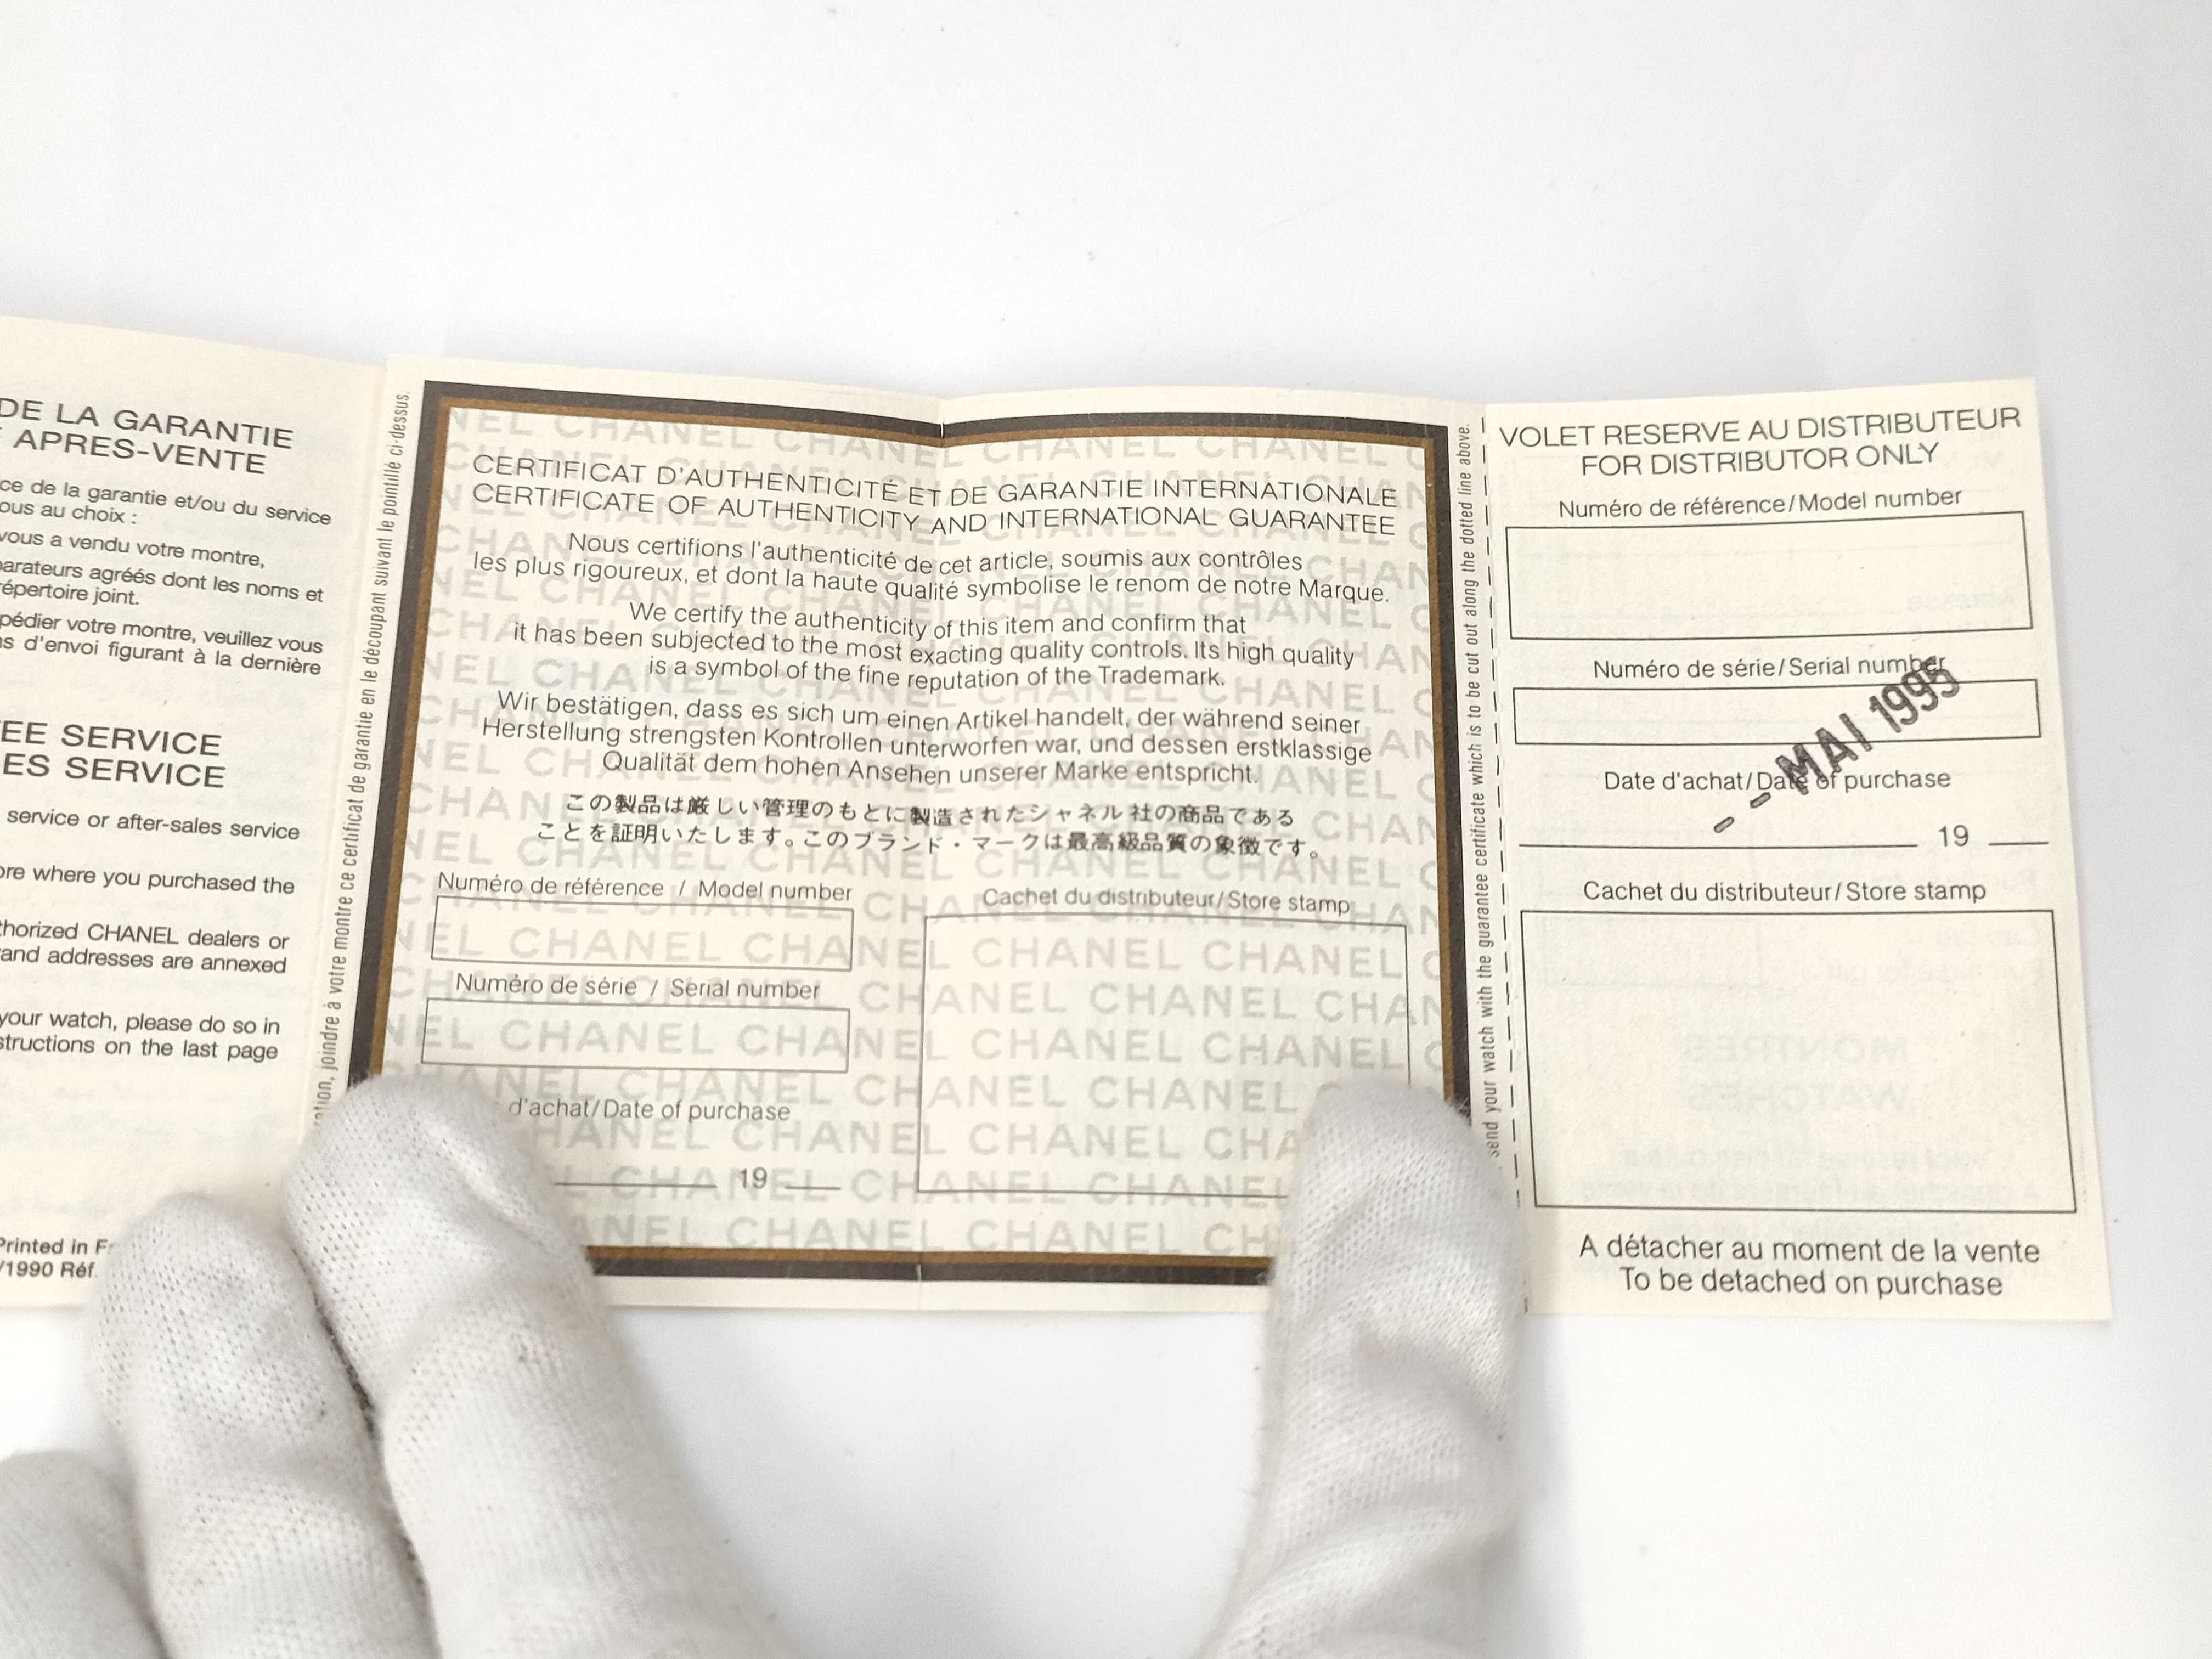 DE LA GARANTIE
APRES-VENTE
ce de la garantie et/ou du service
ous au choix :
vous a vendu votre montre,
parateurs agréés dont les noms et
répertoire joint.
pédier votre montre, veuillez vous
ns d'envoi figurant à la dernière
EE SERVICE
ES SERVICE
service or after-sales service
ore where you purchased the
thorized CHANEL dealers or
and addresses are annexed
your watch, please do so in
structions on the last page
Printed in F
/1990 Réf.
ation, joindre à votre montre ce certificat de garantie en le découpant suivant le pointillé ci-dessus.
CERTIFICAT D'AUTHENTICITÉ ET DE GARANTIE INTERNATIONALE
CERTIFICATE OF AUTHENTICITY AND INTERNATIONAL GUARANTEE
Nous certifions l'authenticité de cet article, soumis aux contrôles
les plus rigoureux, et dont la haute qualité symbolise le renom de notre Marque.
We certify the authenticity of this item and confirm that
it has been subjected to the most exacting quality controls. Its high quality
is a symbol of the fine reputation of the Trademark.
Wir bestätigen, dass es sich um einen Artikel handelt, der während seiner
Herstellung strengsten Kontrollen unterworfen war, und dessen erstklassige
Qualität dem hohen Ansehen unserer Marke entspricht.
この製品は厳しい管理のもとに製造されたシャネル社の商品である
ことを証明いたします。このブランド・マークは最高級品質の象徴です。
Numéro de référence / Model number
Numéro de série / Serial number
d'achat/Date of purchase
19
Cachet du distributeur/Store stamp
send your watch with the guarantee certificate which is to be cut out along the dotted line above.
VOLET RESERVE AU DISTRIBUTEUR
FOR DISTRIBUTOR ONLY
Numéro de référence/Model number
Numéro de série/Serial number
- MAI 1995
Date d'achat/Date of purchase
19
Cachet du distributeur/Store stamp
A détacher au moment de la vente
To be detached on purchase